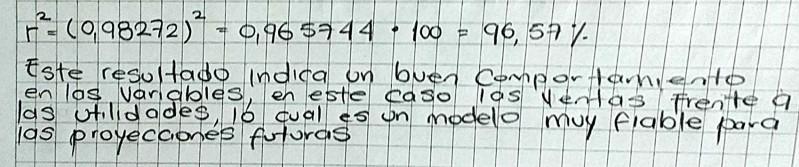 r² = (0,98272)² = 0,965744 · 100 = 96,57 %.
Este resultado indica un buen comportamiento
en las variables, en este caso las ventas frente a
las utilidades, lo cual es un modelo muy fiable para
las proyecciones futuras